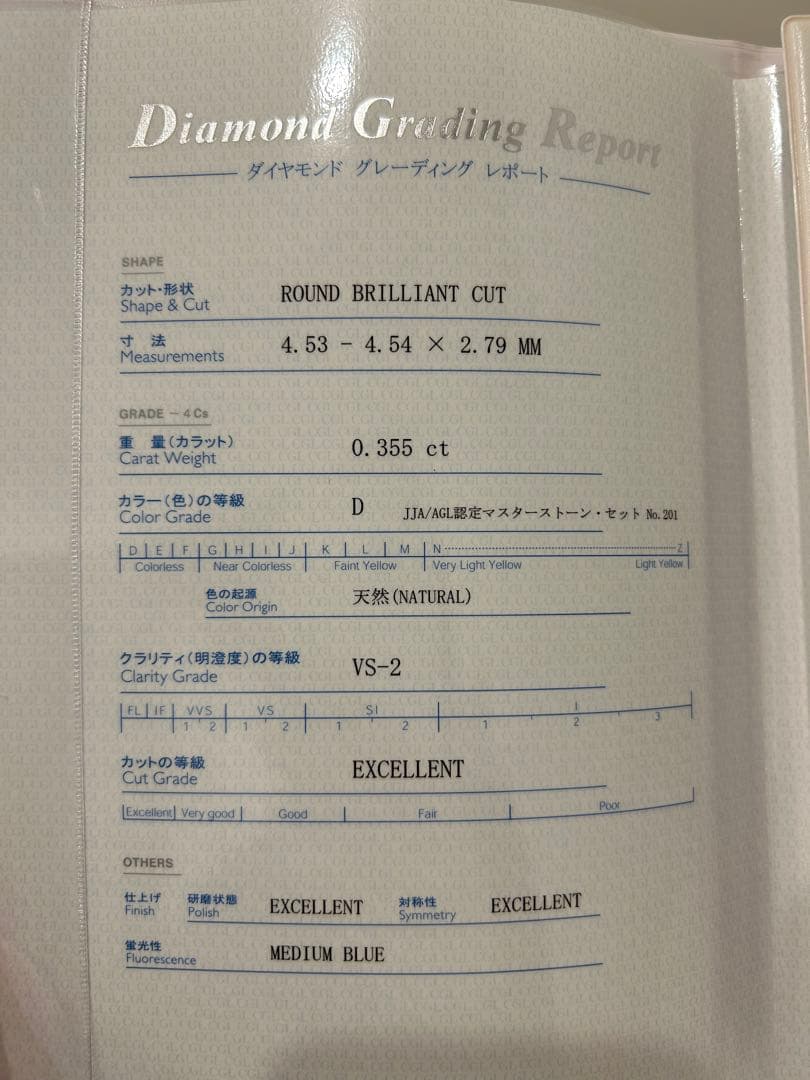 Diamond Grading Report
ダイヤモンド グレーディング レポート
SHAPE
カット・形状
Shape & Cut
ROUND BRILLIANT CUT
寸 法
Measurements
4.53 - 4.54 × 2.79 MM
GRADE - 4Cs
重 量(カラット)
Carat Weight
0.355 ct
カラー(色)の等級
Color Grade
D JJA/AGL認定マスターストーン・セット No.201
D E F G H I J K L M N Z
Colorless Near Colorless Faint Yellow Very Light Yellow Light Yellow
色の起源
Color Origin
天然(NATURAL)
クラリティ(明澄度)の等級
Clarity Grade
VS-2
FL IF VVS VS SI I
1 2 1 2 1 2 1 2 3
カットの等級
Cut Grade
EXCELLENT
Excellent Very good Good Fair Poor
OTHERS
仕上げ
Finish
研磨状態
Polish
EXCELLENT
対称性
Symmetry
EXCELLENT
蛍光性
Fluorescence
MEDIUM BLUE